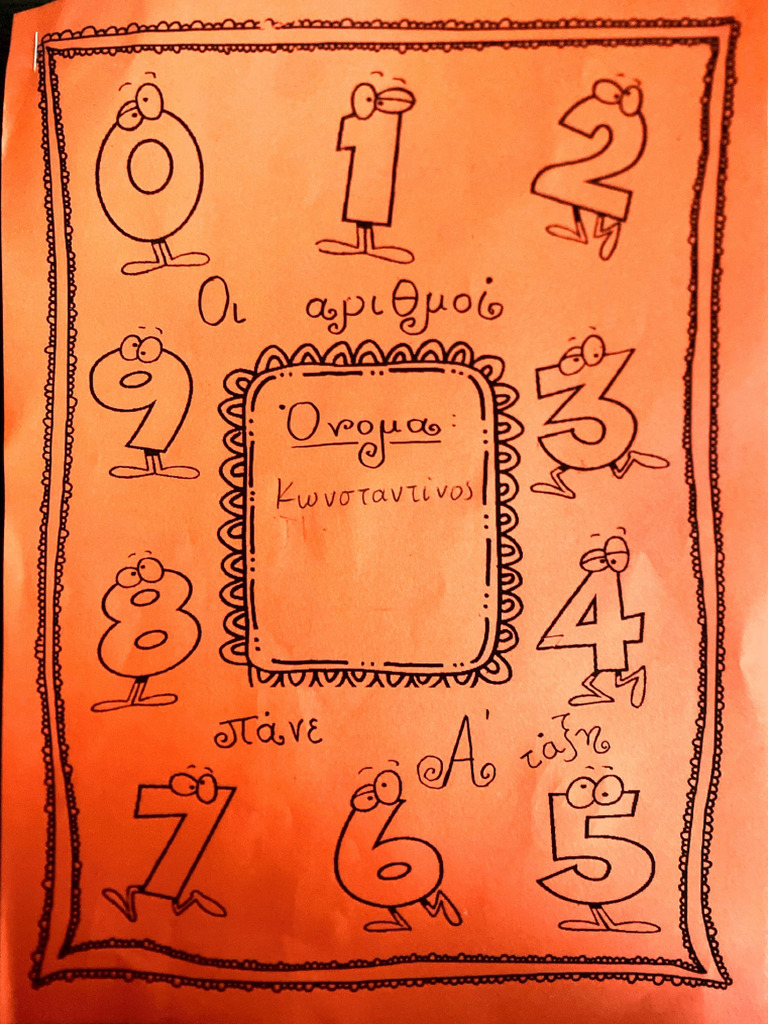 0 1 2
Οι αριθμοί
9
3
Όνομα:
Κωνσταντίνος
8
4
πάνε Α' τάξη
7 6 5